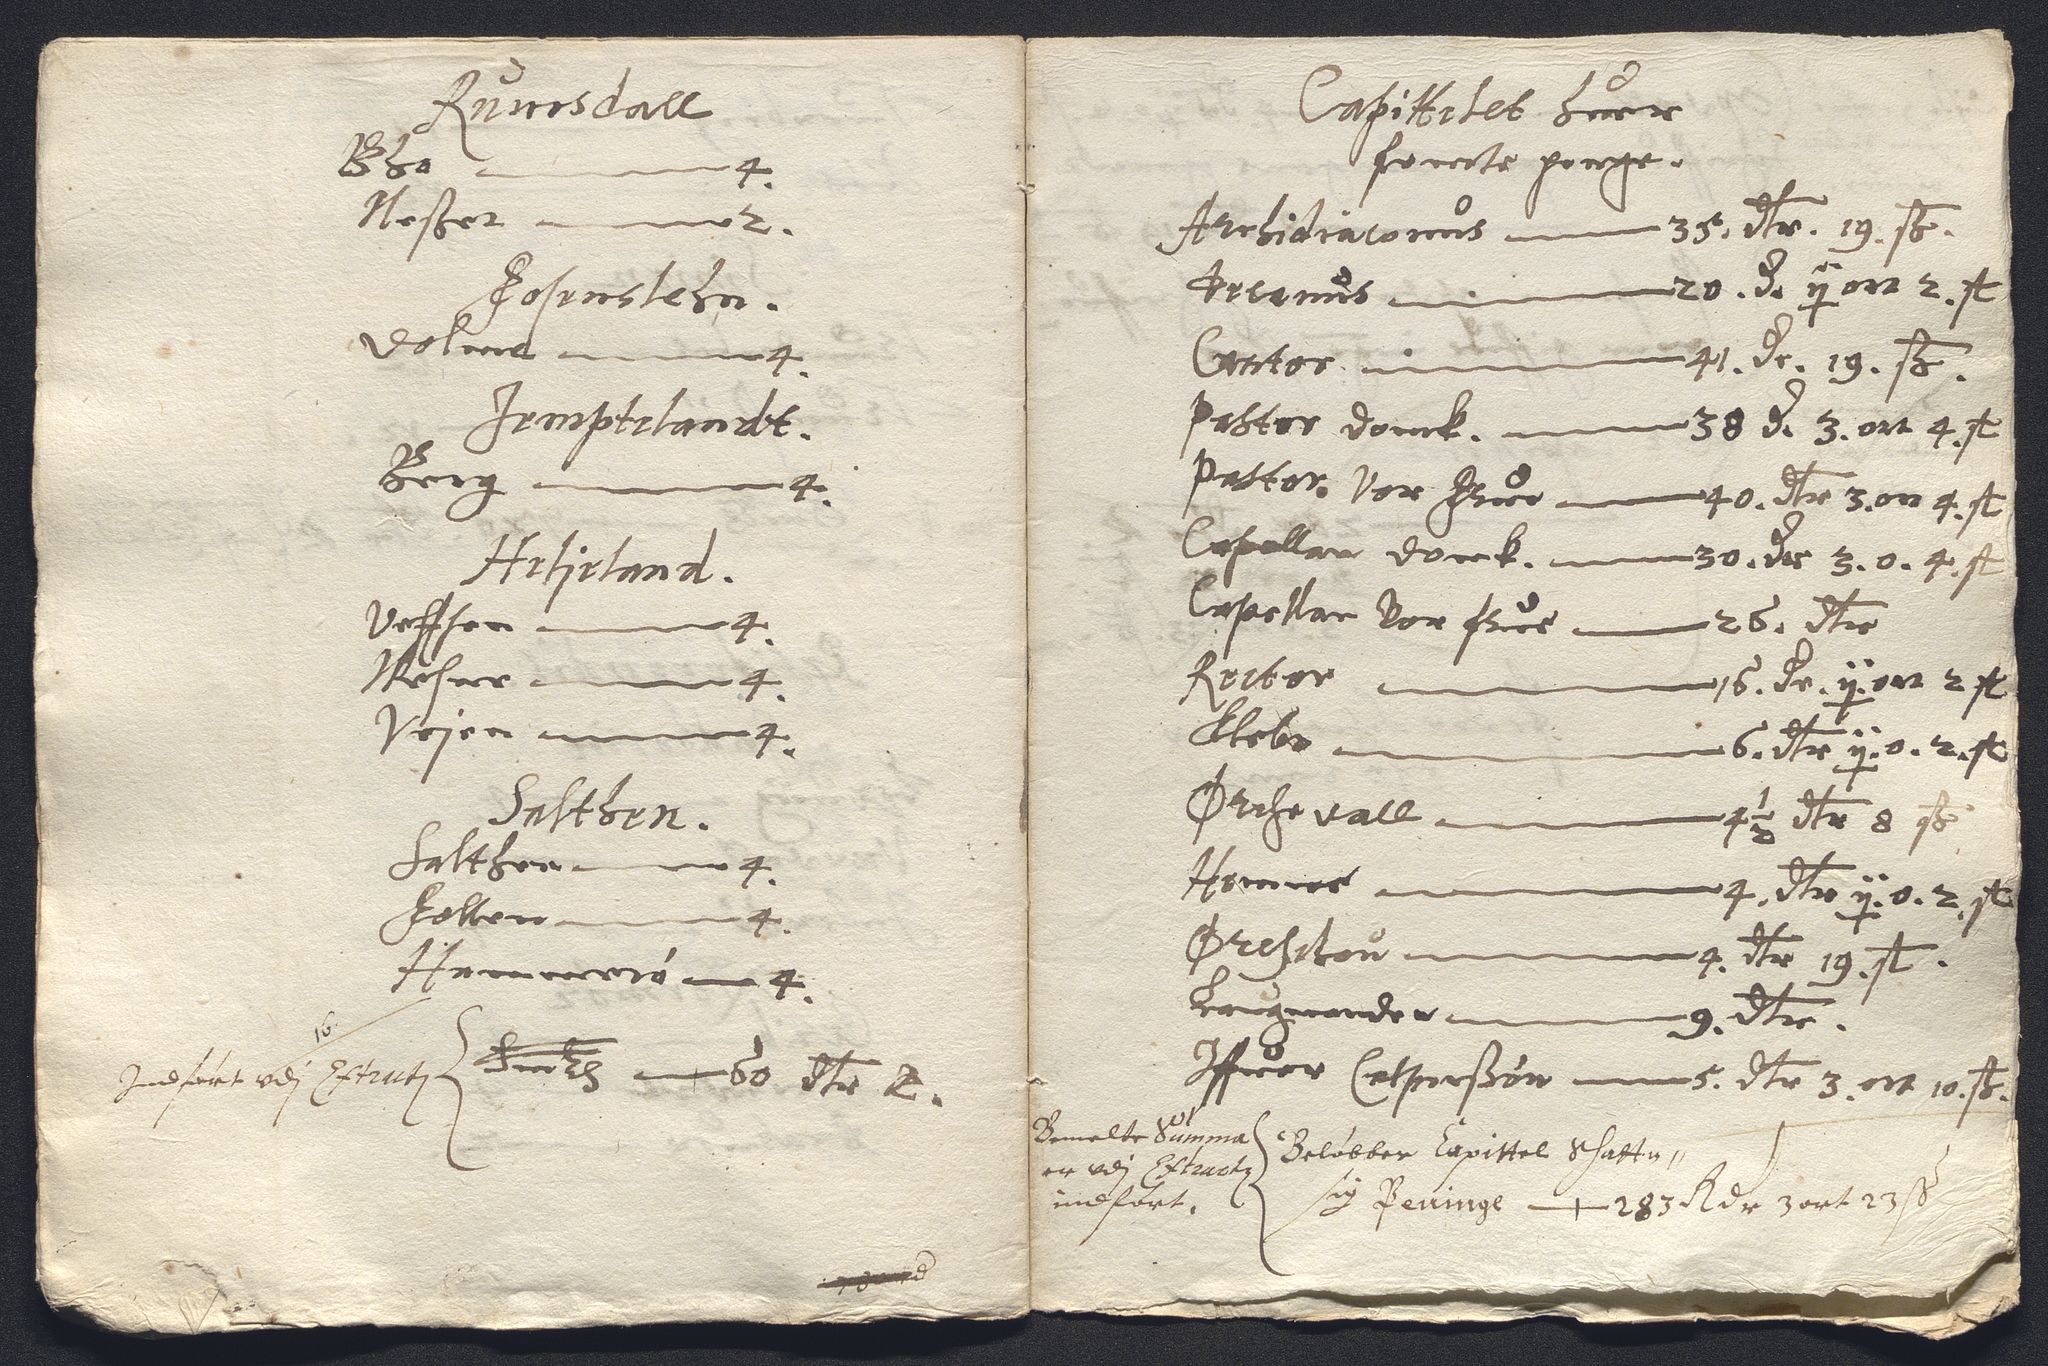 Rumsdall
Bho — 4.
Nesset — 2.
Fosenslehn.
Dolme — 4.
Jemptelandt.
Berg — 4.
Helieland.
Veffsen — 4.
Nesne — 4.
Vejen — 4.
Salthen.
Salthen — 4.
Folden — 4.
Hammerø — 4.
16
Indført udj Extractz
60 dlr
Capittelet huer
serdele penge.
Archidiaconus — 35. dlr. 19. ß.
Decanus — 20. d. ij ort 2. sk
Cantor — 41. dr. 19. ß.
Pastor domk. — 38 d. 3. ort 4. sk
Pastor. Vor frue — 40. dlr 3. ort 4. sk
Capellan domk. — 30. dr 3. o. 4. sk
Capellan Vor frue — 26. dlr
Rector — 16. dr. ij. ort 2 sk
Klebo — 6. dlr ij. o. 2. sk
Ørchedall — 4½ dlr 8 ß
Hemne — 4. dlr ij. o. 2. sk
Ørchehou — 4. dlr 19. sk.
Laugmanden — 9. dlr.
Iffuer Casperßøn — 5. dlr 3. ort 10. ß.
Bemelte Summa
er udj Extractz
indført.
Beløbber Capittel Schatten
sig Penninge — 283 Rdr 3 ort 23 ß